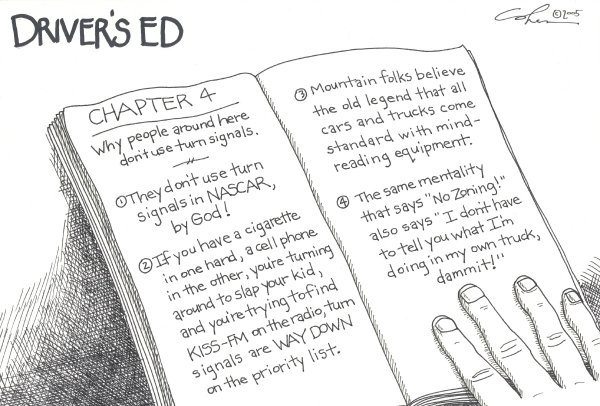 DRIVER'S ED
Cohen ©2005
CHAPTER 4
Why people around here
don't use turn signals.
① They don't use turn
signals in NASCAR,
by God!
② If you have a cigarette
in one hand, a cell phone
in the other, you're turning
around to slap your kid,
and you're trying to find
KISS-FM on the radio, turn
signals are WAY DOWN
on the priority list.
③ Mountain folks believe
the old legend that all
cars and trucks come
standard with mind-
reading equipment.
④ The same mentality
that says "No Zoning!"
also says "I don't have
to tell you what I'm
doing in my own truck,
dammit!"